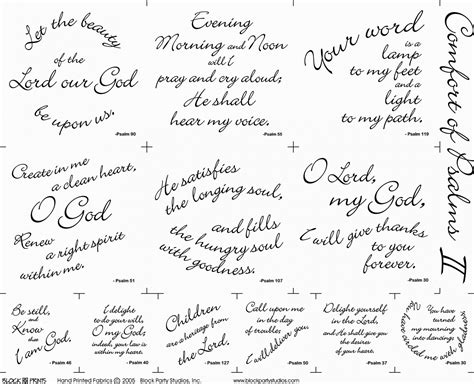 Let the beauty
of the
Lord our God
be upon us.
-Psalm 90
Evening
Morning and Noon
will I
pray and cry aloud;
He shall
hear my voice.
-Psalm 55
Your word
is a
lamp
to my feet
and a
light
to my path.
-Psalm 119
Comfort of Psalms II
Create in me
a clean heart,
O God
Renew
a right spirit
within me.
-Psalm 51
He satisfies
the longing soul,
and fills
the hungry soul
with goodness.
-Psalm 107
O Lord,
my God,
I will give thanks
to you
forever.
-Psalm 30
Be still,
and
Know
that
I am God.
-Psalm 46
I delight
to do your will,
O my God,
indeed, your law is
within my heart.
-Psalm 40
Children
are a heritage
from
the Lord.
-Psalm 127
Call upon me
in the day
of trouble;
I will deliver you.
-Psalm 50
Delight yourself
in the Lord,
and He shall give
you the
desires of
your heart.
-Psalm 37
You have
turned
my mourning
into dancing;
-Psalm 30
BLOCK PRINTS
Hand Printed Fabrics © 2005 Block Party Studios, Inc.
www.blockpartystudios.com